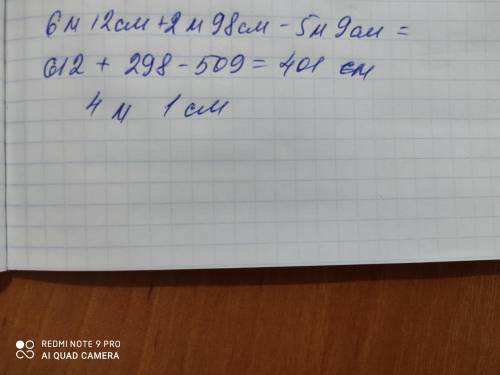 6 м 12 см + 2 м 98 см - 5 м 9 см =
612 + 298 - 509 = 401 см
4 м 1 см
REDMI NOTE 9 PRO
AI QUAD CAMERA